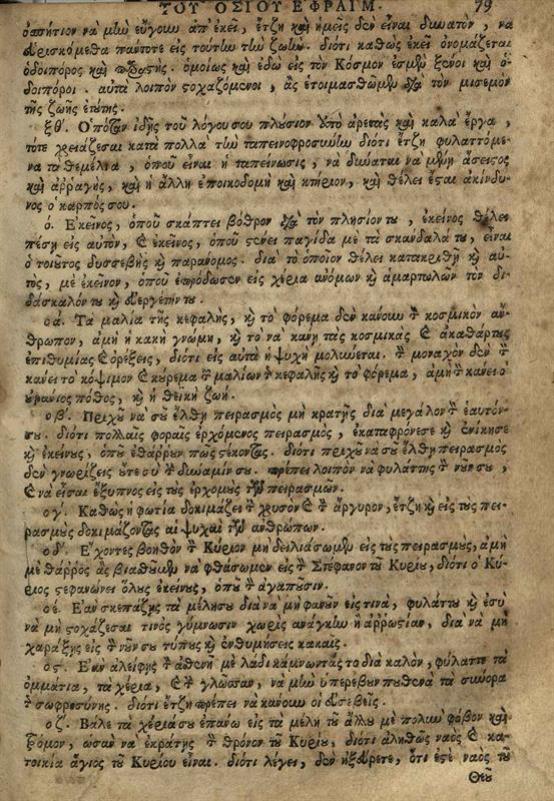 ΤΟΥ ΟΣΙΟΥ ΕΦΡΑΙΜ. 79
ὀσπήτιον νὰ μὴν εὔγουν ἀπ' ἐκεῖ, ἔτζι καὶ ἡμεῖς δὲν εἶναι δυνατὸν, νὰ
εὑρισκόμεθα πάντοτε εἰς τούτην τὴν ζωήν. διότι καθὼς ἐκεῖ ὀνομάζεται
ὁδοιπόρος καὶ . ὁμοίως καὶ ἐδῶ εἰς τὸν Κόσμον ἐσμὲν ξένοι καὶ ὁ-
δοιπόροι. αὐτὰ λοιπὸν στοχαζόμενοι, ἂς ἑτοιμασθῶμεν διὰ τὸν μισεμὸν
τῆς ζωῆς ἐτύτης.
ξθ'. Ὁπόταν ἰδῇς τοῦ λόγου σου πλούσιον ἀπὸ ἀρετὰς καὶ καλὰ ἔργα,
τότε χρειάζεσαι κατὰ πολλὰ τὴν ταπεινοφροσύνην διότι ἔτζι φυλαττόμε-
να τὰ θεμέλια, ὁποῦ εἶναι ἡ ταπείνωσις, νὰ δύναται νὰ μένῃ ἄσειστος
καὶ ἀρραγὴς, καὶ ἡ ἄλλη ἐποικοδομὴ καὶ κτήριον, καὶ θέλει ἔσται ἀκίνδυ-
νος ὁ καρπός σου.
ό. Ἐκεῖνος, ὁποῦ σκάπτει βόθρον διὰ τὸν πλησίον του, ἐκεῖνος θέλει
πέσῃ εἰς αὐτὸν, & ἐκεῖνος, ὁποῦ στένει παγίδα μὲ τὰ σκάνδαλά του, εἶναι
ὁ τοιοῦτος δυσσεβὴς κὶ παράνομος. διὰ τὸ ὁποῖον θέλει κατακριθῇ κὶ αὐ-
τὸς, μὲ ἐκεῖνον, ὁποῦ ἐπρόδωσεν εἰς χέρια ἀνόμων κὶ ἁμαρτωλῶν τὸν δι-
δάσκαλόν του κὶ εὐεργέτην του.
οά. Τὰ μαλία τῆς κεφαλῆς, κὶ τὸ φόρεμα δὲν κάνουν τὸν κοσμικὸν ἄν-
θρωπον, ἀμὴ ἡ κακὴ γνώμη, κὶ τὸ νὰ κάνῃ τὰς κοσμικὰς & ἀκαθάρτους
ἐπιθυμίας & ὀρέξεις, διότι εἰς αὐτὰ ἡ ψυχὴ μολύνεται. τὸν μοναχὸν δὲν τὸν
κάνει τὸ κόψιμον & κύρεμα τῶν μαλίων τῆς κεφαλῆς κὶ τὸ φόρεμα, ἀμὴ τὸν κάνει ὁ
οὐράνιος πόθος, κὶ ἡ θεικὴ ζωή.
οβ'. Πρὶχου νὰ σοῦ ἔλθῃ πειρασμὸς μὴ κρατῇς διὰ μεγάλον τὸν ἑαυτόν-
σου. διότι πολλαῖς φοραῖς ἐρχόμενος πειρασμὸς, ἐκαταφρόνεσε κὶ ἐνίκησε
κὶ ἐκείνους, ὁποῦ ἐθάρρουν πῶς στέκονται. διότι πρὶχου νὰ σοῦ ἔλθῃ πειρασμὸς
δὲν γνωρίζεις οὔτε σοῦ τὴν δύναμίν σου. πρέπει λοιπὸν νὰ φυλάττῃς τὸν νοῦν σου,
& νὰ εἶσαι ἔξυπνος εἰς τοὺς ἐρχομοὺς τῶν πειρασμῶν.
ογ'. Καθὼς ἡ φωτία δοκιμάζει τὸν χρυσὸν & τὸν ἄργυρον, ἔτζι κὶ εἰς τοὺς πει-
ρασμοὺς δοκιμάζονται αἱ ψυχαὶ τῶν ἀνθρώπων.
οδ'. Ἔχοντες βοηθὸν τὸν Κύριον μὴ δειλιάσωμεν εἰς τοὺς πειρασμοὺς, ἀμὴ
μὲ θάρρος ἂς βιασθῶμεν νὰ φθάσωμεν εἰς τὸν Στέφανον τοῦ Κυρίου, διότι ὁ Κύ-
ριος στεφανώνει ὅλους ἐκείνους, ὁποῦ τὸν ἀγαποῦσιν.
οέ. Ἐὰν σκεπάζῃς τὰ μέλη σου διὰ νὰ μὴ φανοῦν εἰς τινὰ, φυλάττου κὶ ἐσὺ
νὰ μὴ στοχάζεσαι τινὸς γύμνωσιν χωρὶς ἀνάγκην ἢ ἀρρωστίαν, διὰ νὰ μὴ
χαράξῃς εἰς τὸν νοῦν σου τύπους κὶ ἐνθυμήσεις κακαίς.
οϛ. Ἐὰν ἀλείφῃς τὸν ἀσθενῆ μὲ λάδι κάμνωντάς το διὰ καλὸν, φύλαττε τὰ
ὀμμάτια, τὰ χέρια, & τὴν γλῶσσαν, νὰ μὴν ὑπερεβοῦν ποθενὰ τὰ σύνορα
τῆς σωφροσύνης. διότι ἔτζι πρέπει νὰ κάνουν οἱ εὐσεβεῖς.
οζ. Βάλε τὰ χέριά σου ἐπάνω εἰς τὰ μέλη τοῦ ἄλλου μὲ πολὺν φόβον καὶ
τρόμον, ὡσὰν νὰ ἐκράτῃς τὸν θρόνον τοῦ Κυρίου, διότι ἀληθῶς ναὸς & κα-
τοικία ἅγιος τοῦ Κυρίου εἶναι. διότι λέγει, δὲν ἠξεύρετε, ὅτι ἐστὲ ναὸς τοῦ
Θεοῦ